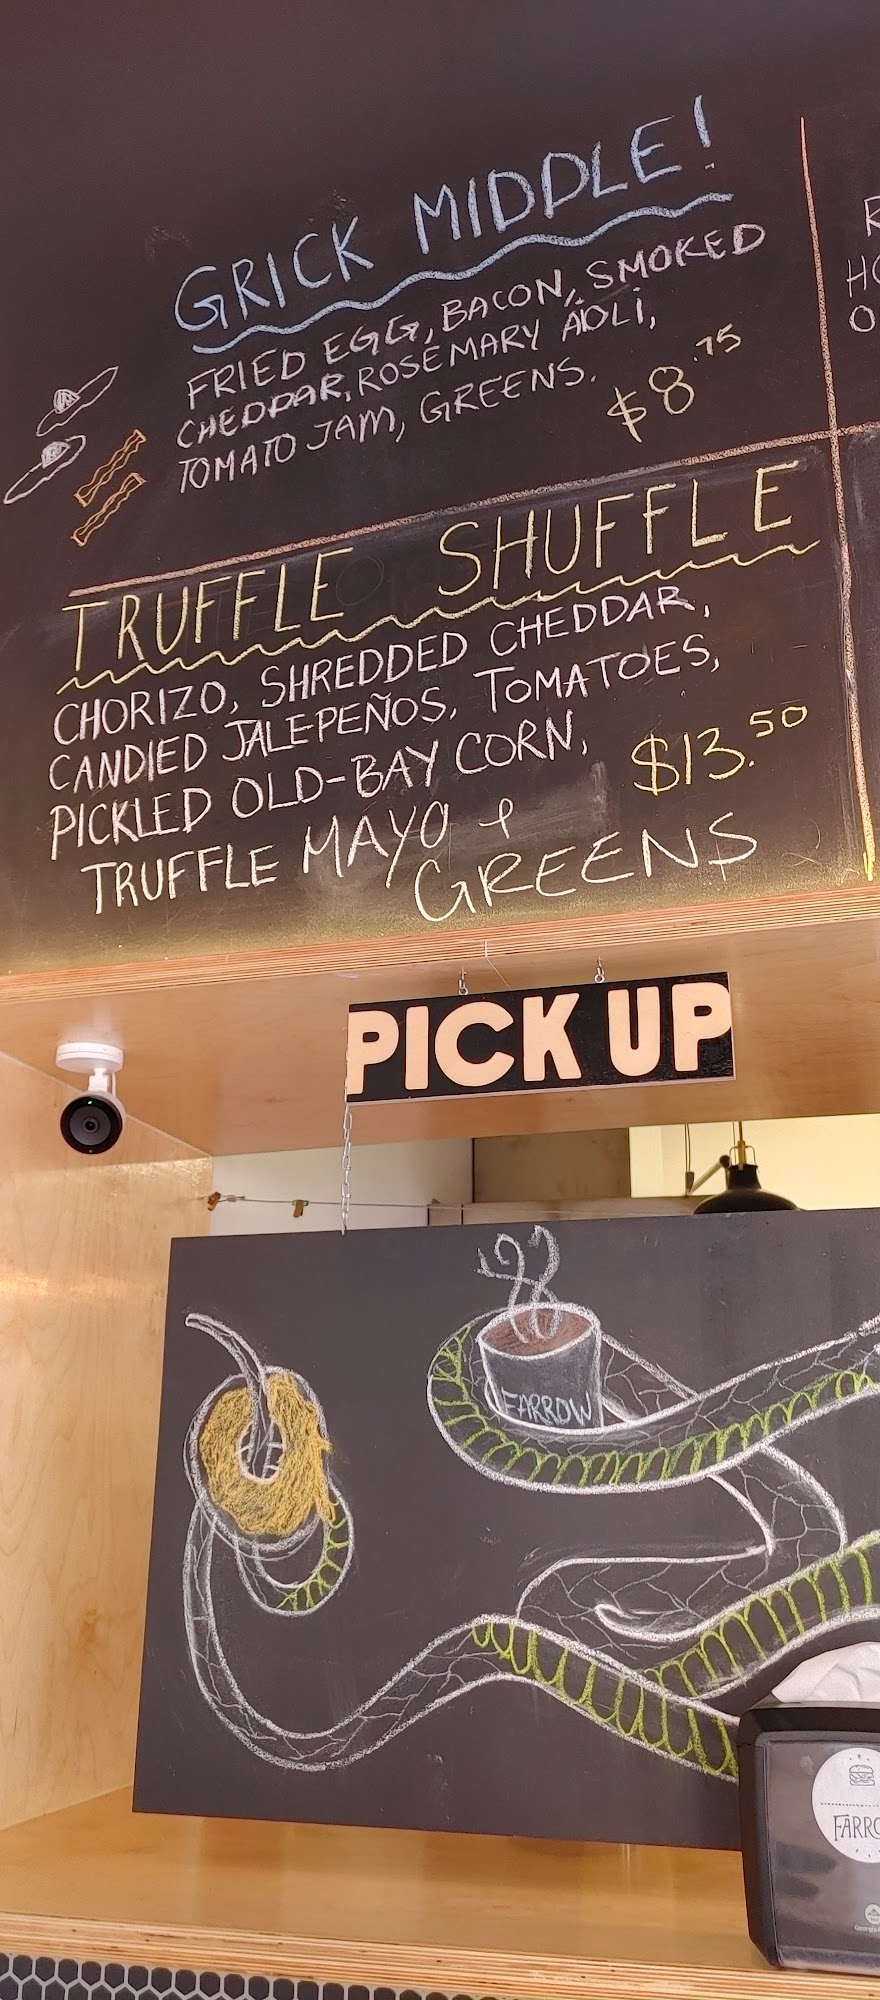 GRICK MIDDLE!
FRIED EGG, BACON, SMOKED
CHEDDAR, ROSEMARY ÄOLI,
TOMATO JAM, GREENS.
$8.75
TRUFFLE SHUFFLE
CHORIZO, SHREDDED CHEDDAR,
CANDIED JALEPEÑOS, TOMATOES,
PICKLED OLD-BAY CORN,
$13.50
TRUFFLE MAYO &
GREENS
PICK UP
FARROW